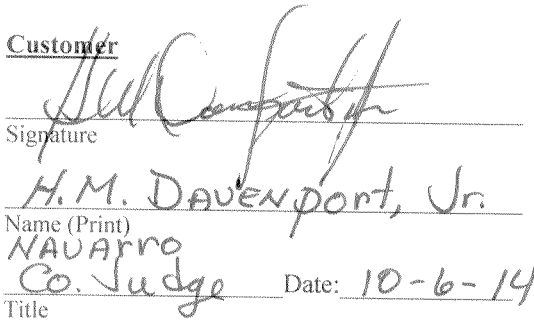 Customer
Signature
H.M. Davenport, Jr.
Name (Print)
Navarro
Co. Judge Date: 10-6-14
Title